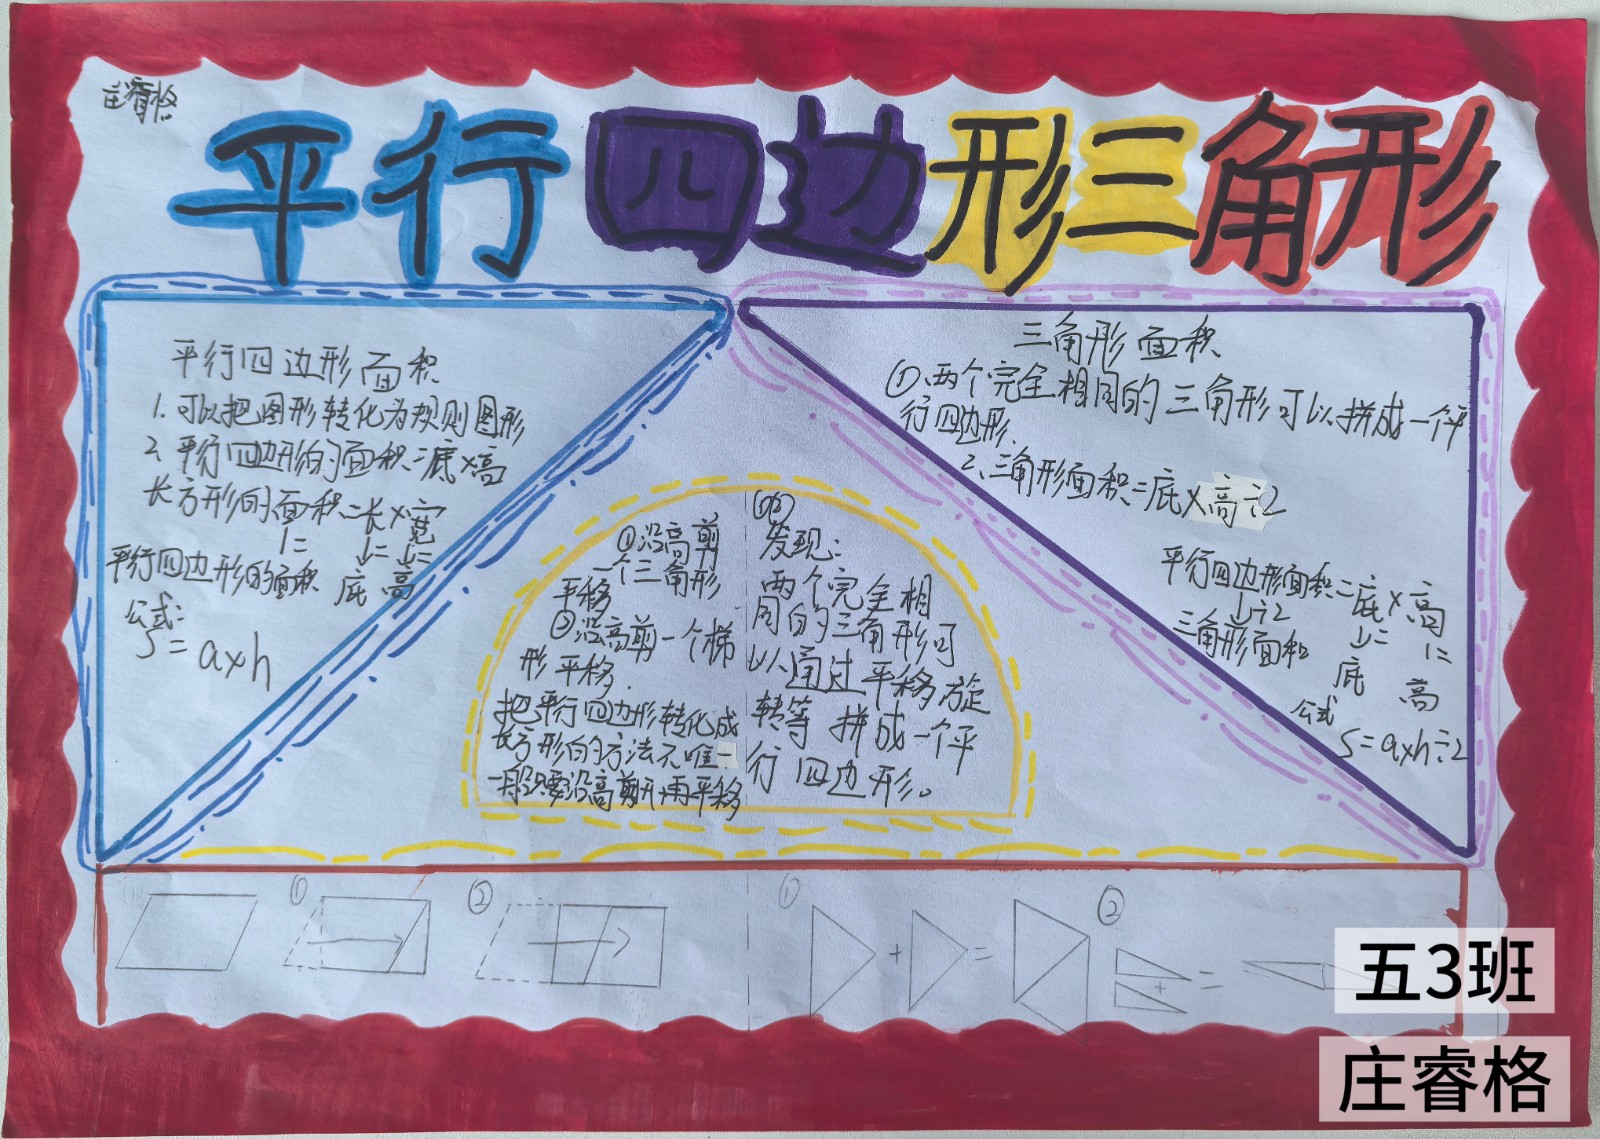 庄睿格
平行四边形三角形
平行四边形面积
1.可以把图形转化为规则图形
2、平行四边形的面积=底×高
长方形的面积=长×宽
↓= ↓= ↓=
平行四边形的面积 底 高
公式:
S=a×h
三角形面积
①、两个完全相同的三角形可以拼成一个平
行四边形.
2、三角形面积=底×高÷2
平行四边形面积=底×高
↓÷2 ↓= ↓=
三角形面积 底 高
公式
S=a×h÷2
①沿高剪
一个三角形
平移
②沿高剪一个梯
形平移.
把平行四边形转化成
长方形的方法不唯一
一般只要沿高剪开再平移
发现:
两个完全相
同的三角形可
以通过平移旋
转等拼成一个平
行四边形。
① ② ① + = ② + =
五3班
庄睿格